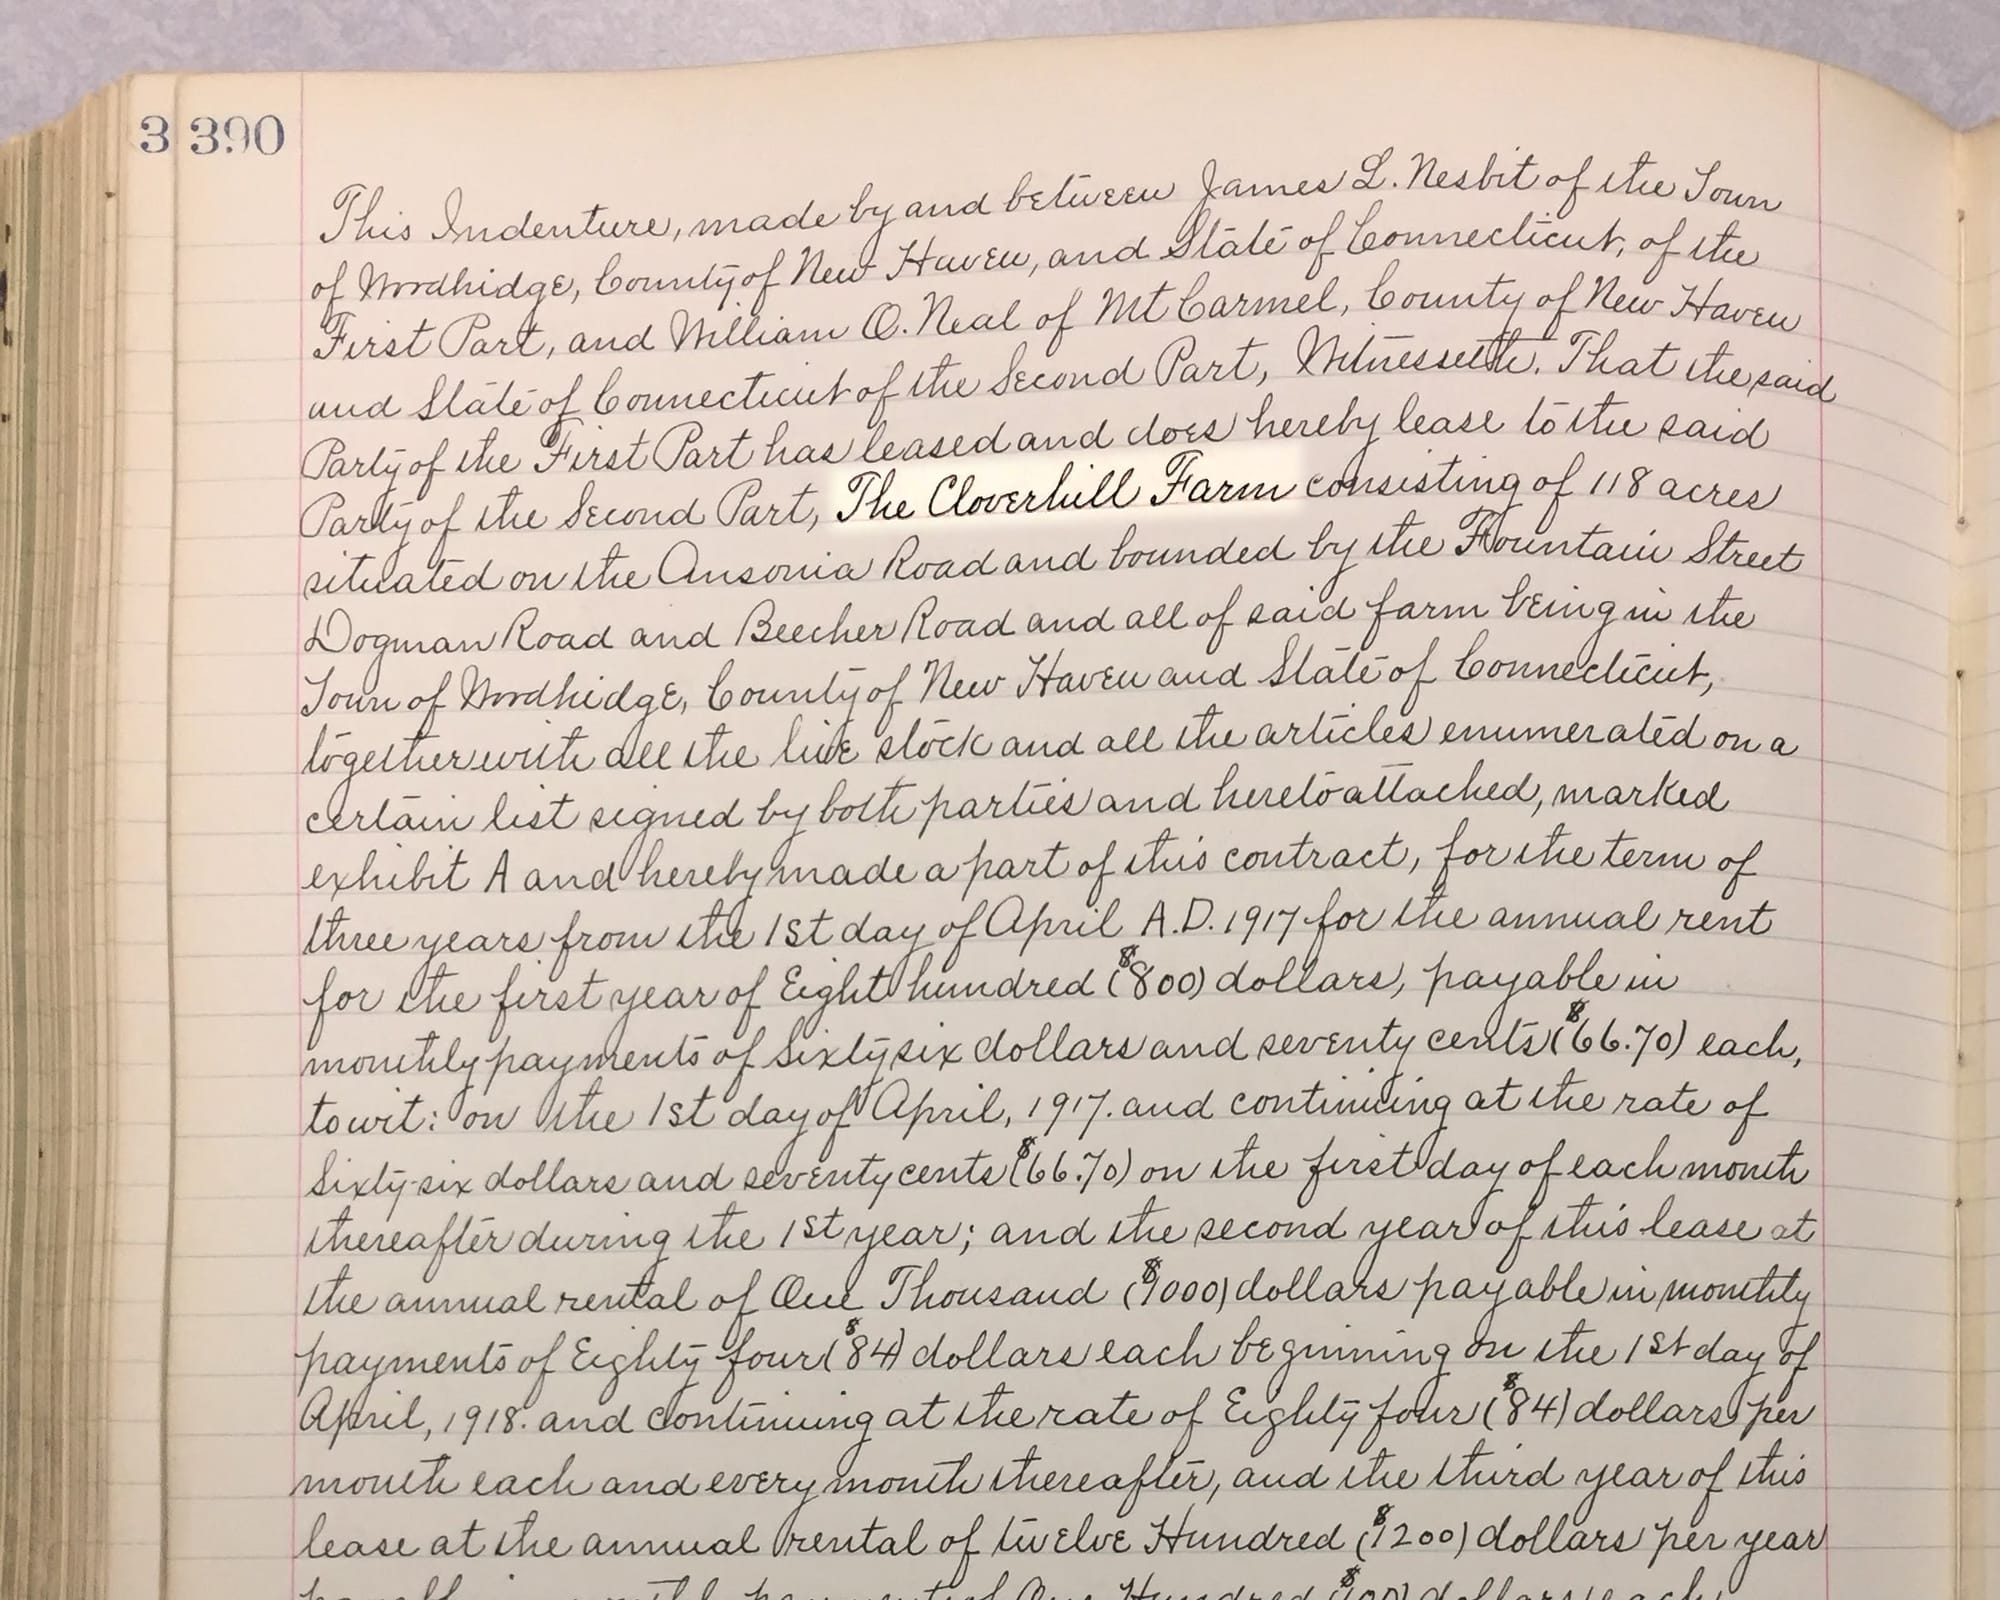 3 390
This Indenture, made by and between James L. Nesbit of the Town
of Woodbridge, County of New Haven, and State of Connecticut, of the
First Part, and William O. Neal of Mt Carmel, County of New Haven
and State of Connecticut of the Second Part, Witnesseth. That the said
Party of the First Part has leased and does hereby lease to the said
Party of the Second Part, The Cloverhill Farm consisting of 118 acres
situated on the Ansonia Road and bounded by the Fountain Street
Dogman Road and Beecher Road and all of said farm being in the
Town of Woodbridge, County of New Haven and State of Connecticut,
together with all the live stock and all the articles enumerated on a
certain list signed by both parties and hereto attached, marked
exhibit A and hereby made a part of this contract, for the term of
three years from the 1st day of April A.D. 1917 for the annual rent
for the first year of Eight hundred ($800) dollars, payable in
monthly payments of Sixty six dollars and seventy cents ($66.70) each,
to wit: on the 1st day of April, 1917. and continuing at the rate of
Sixty-six dollars and seventy cents ($66.70) on the first day of each month
thereafter during the 1st year; and the second year of this lease at
the annual rental of One Thousand ($1000) dollars payable in monthly
payments of Eighty four ($84) dollars each beginning on the 1st day of
April, 1918. and continuing at the rate of Eighty four ($84) dollars per
month each and every month thereafter, and the third year of this
lease at the annual rental of twelve Hundred ($1200) dollars per year
payments of One Hundred ($100) dollars each